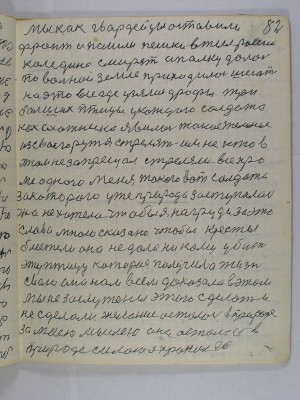 82
мы как гвардейцы оставили
фронт и пошли пешки в тыл
и палку долой
по вольной земле приходилось шагать
на это везде гуляли дрофы
больших птицы у каждого солдата
как охотника явилось такое желание
из своего рук стрелять или не кто в
этом не запрещал стреляли все кро
ме одного меня такого вот солдата
за которого уже природа заступилась
и не хотела чтобы я на грудь за это
слава много сказано чтобы кресты
блестели она не дала ни кому убить
эту птицу которая получила жизнь
она нам всем доказала в этом
мы не заслужены этого сделать и
не сделали желание осталось в природе
за моею мыслею она осталась в
природе силой я хранил её